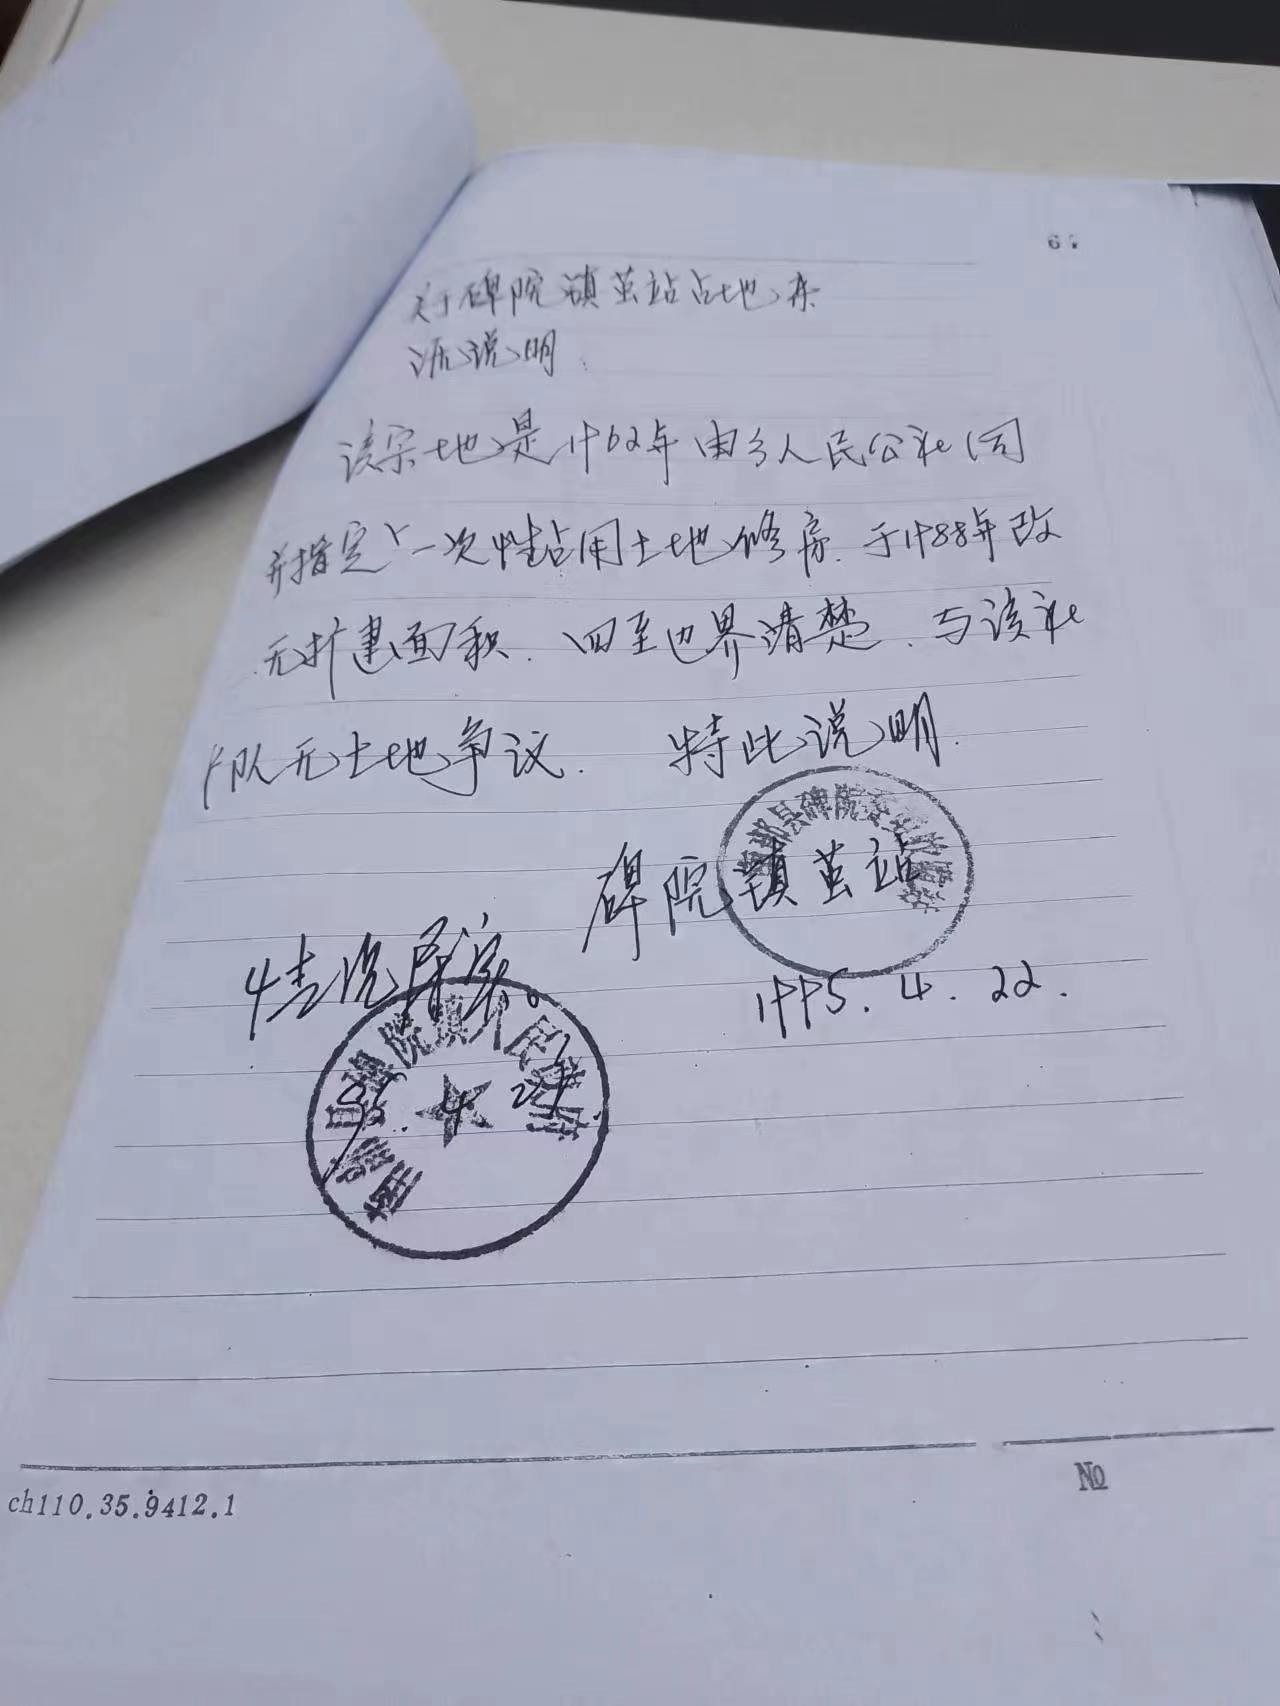 6
关于碑院镇茧站占地来
源说明
该宗地是1962年由乡人民公社同
并指定一次性占用土地修房.于1988年改
无扩建面积.四至边界清楚.与该社
队无土地争议. 特此说明.
南部县碑院
碑院镇茧站
1995.4.22.
情况属实。
南部县碑院镇人民政府
95.4.2
ch110.35.9412.1
№